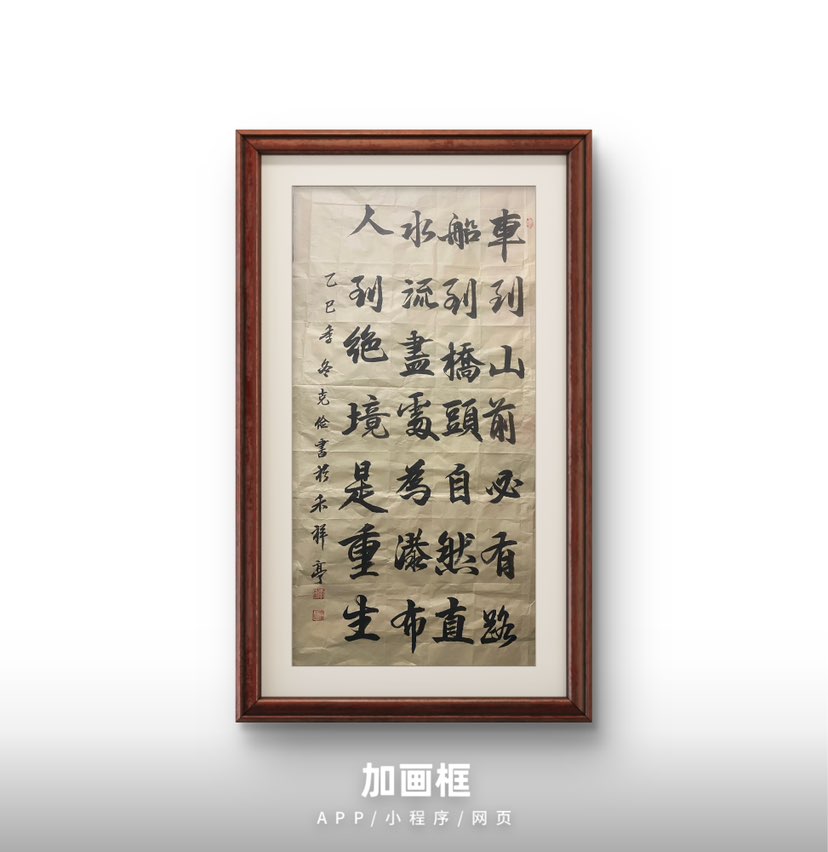 車到山前必有路
船到橋頭自然直
水流盡處為瀑布
人到绝境是重生
乙巳季冬克俭書於禾祥亭
加画框
APP/小程序/网页